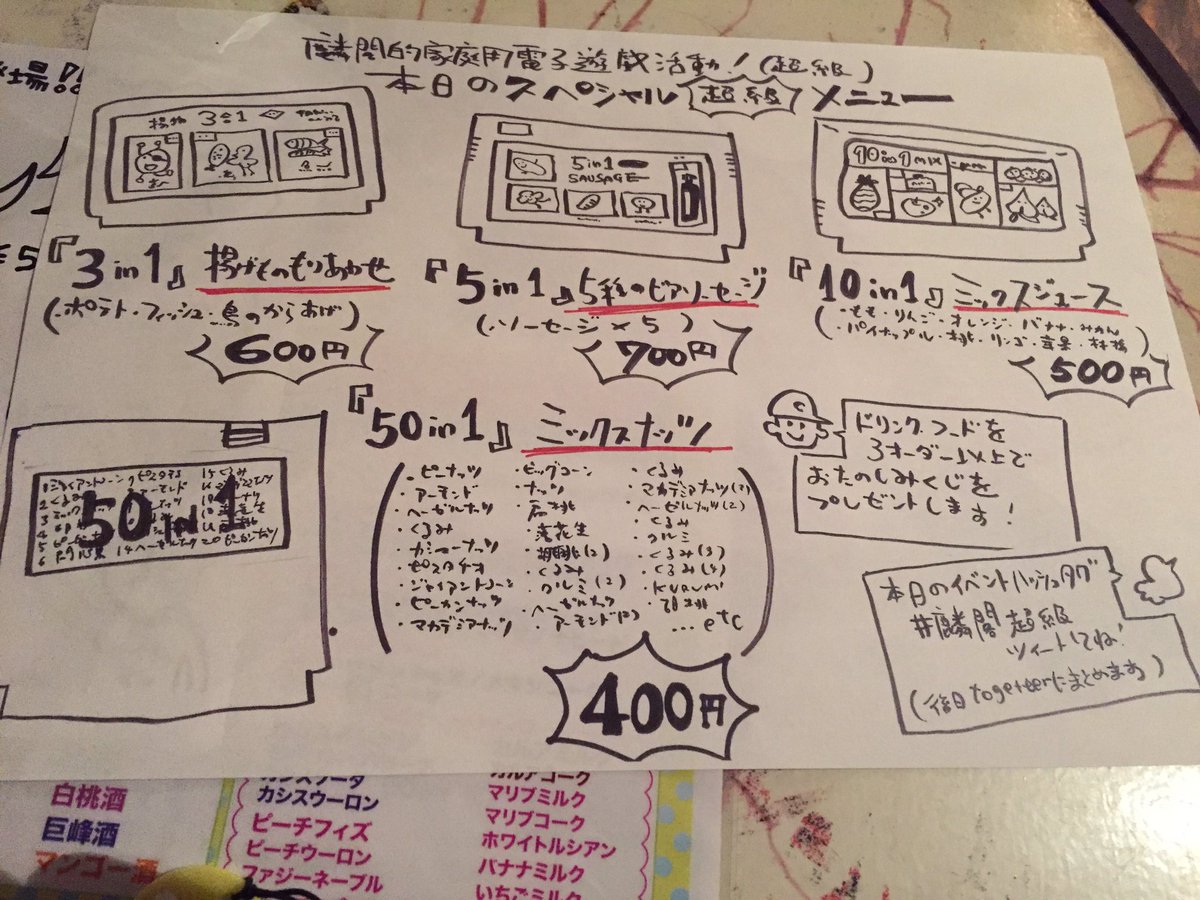 麟閣的家庭用電子遊戯活動！(超級)
本日のスペシャル 超級 メニュー
3合1
5in1
SAUSAGE
10in1 MIX
『3in1』揚げものもりあわせ
(ポテト・フィッシュ・鳥のからあげ)
600円
『5in1』5種のビアソーセージ
(ソーセージ×5)
700円
『10in1』ミックスジュース
(・もも・りんご・オレンジ・バナナ・みかん
パイナップル・桃・リンゴ・苹果・林檎)
500円
50in1
『50in1』ミックスナッツ
・ピーナッツ
・アーモンド
・ヘーゼルナッツ
・くるみ
・カシューナッツ
・ピスタチオ
・ジャイアントコーン
・ピーカンナッツ
・マカデミアナッツ
・ビッグコーン
・ナッツ
・落花生
・胡桃(2)
・くるみ
・クルミ(2)
・ヘーゼルナッツ
・アーモンド(2)
・くるみ
・マカデミアナッツ(2)
・ヘーゼルナッツ(2)
・くるみ
・クルミ
・くるみ(3)
・くるみ(4)
・KURUMI
・胡桃
...etc
400円
ドリンク、フードを
3オーダー以上で
おたのしみくじを
プレゼントします！
本日のイベントハッシュタグ
#麟閣超級
ツイートしてね！
(後日togetterにまとめます)
場!!
5
白桃酒
巨峰酒
マンゴー酒
カシスソーダ
カシスウーロン
ピーチフィズ
ピーチウーロン
ファジーネーブル
カルアコーク
マリブミルク
マリブコーク
ホワイトルシアン
バナナミルク
いちごミルク